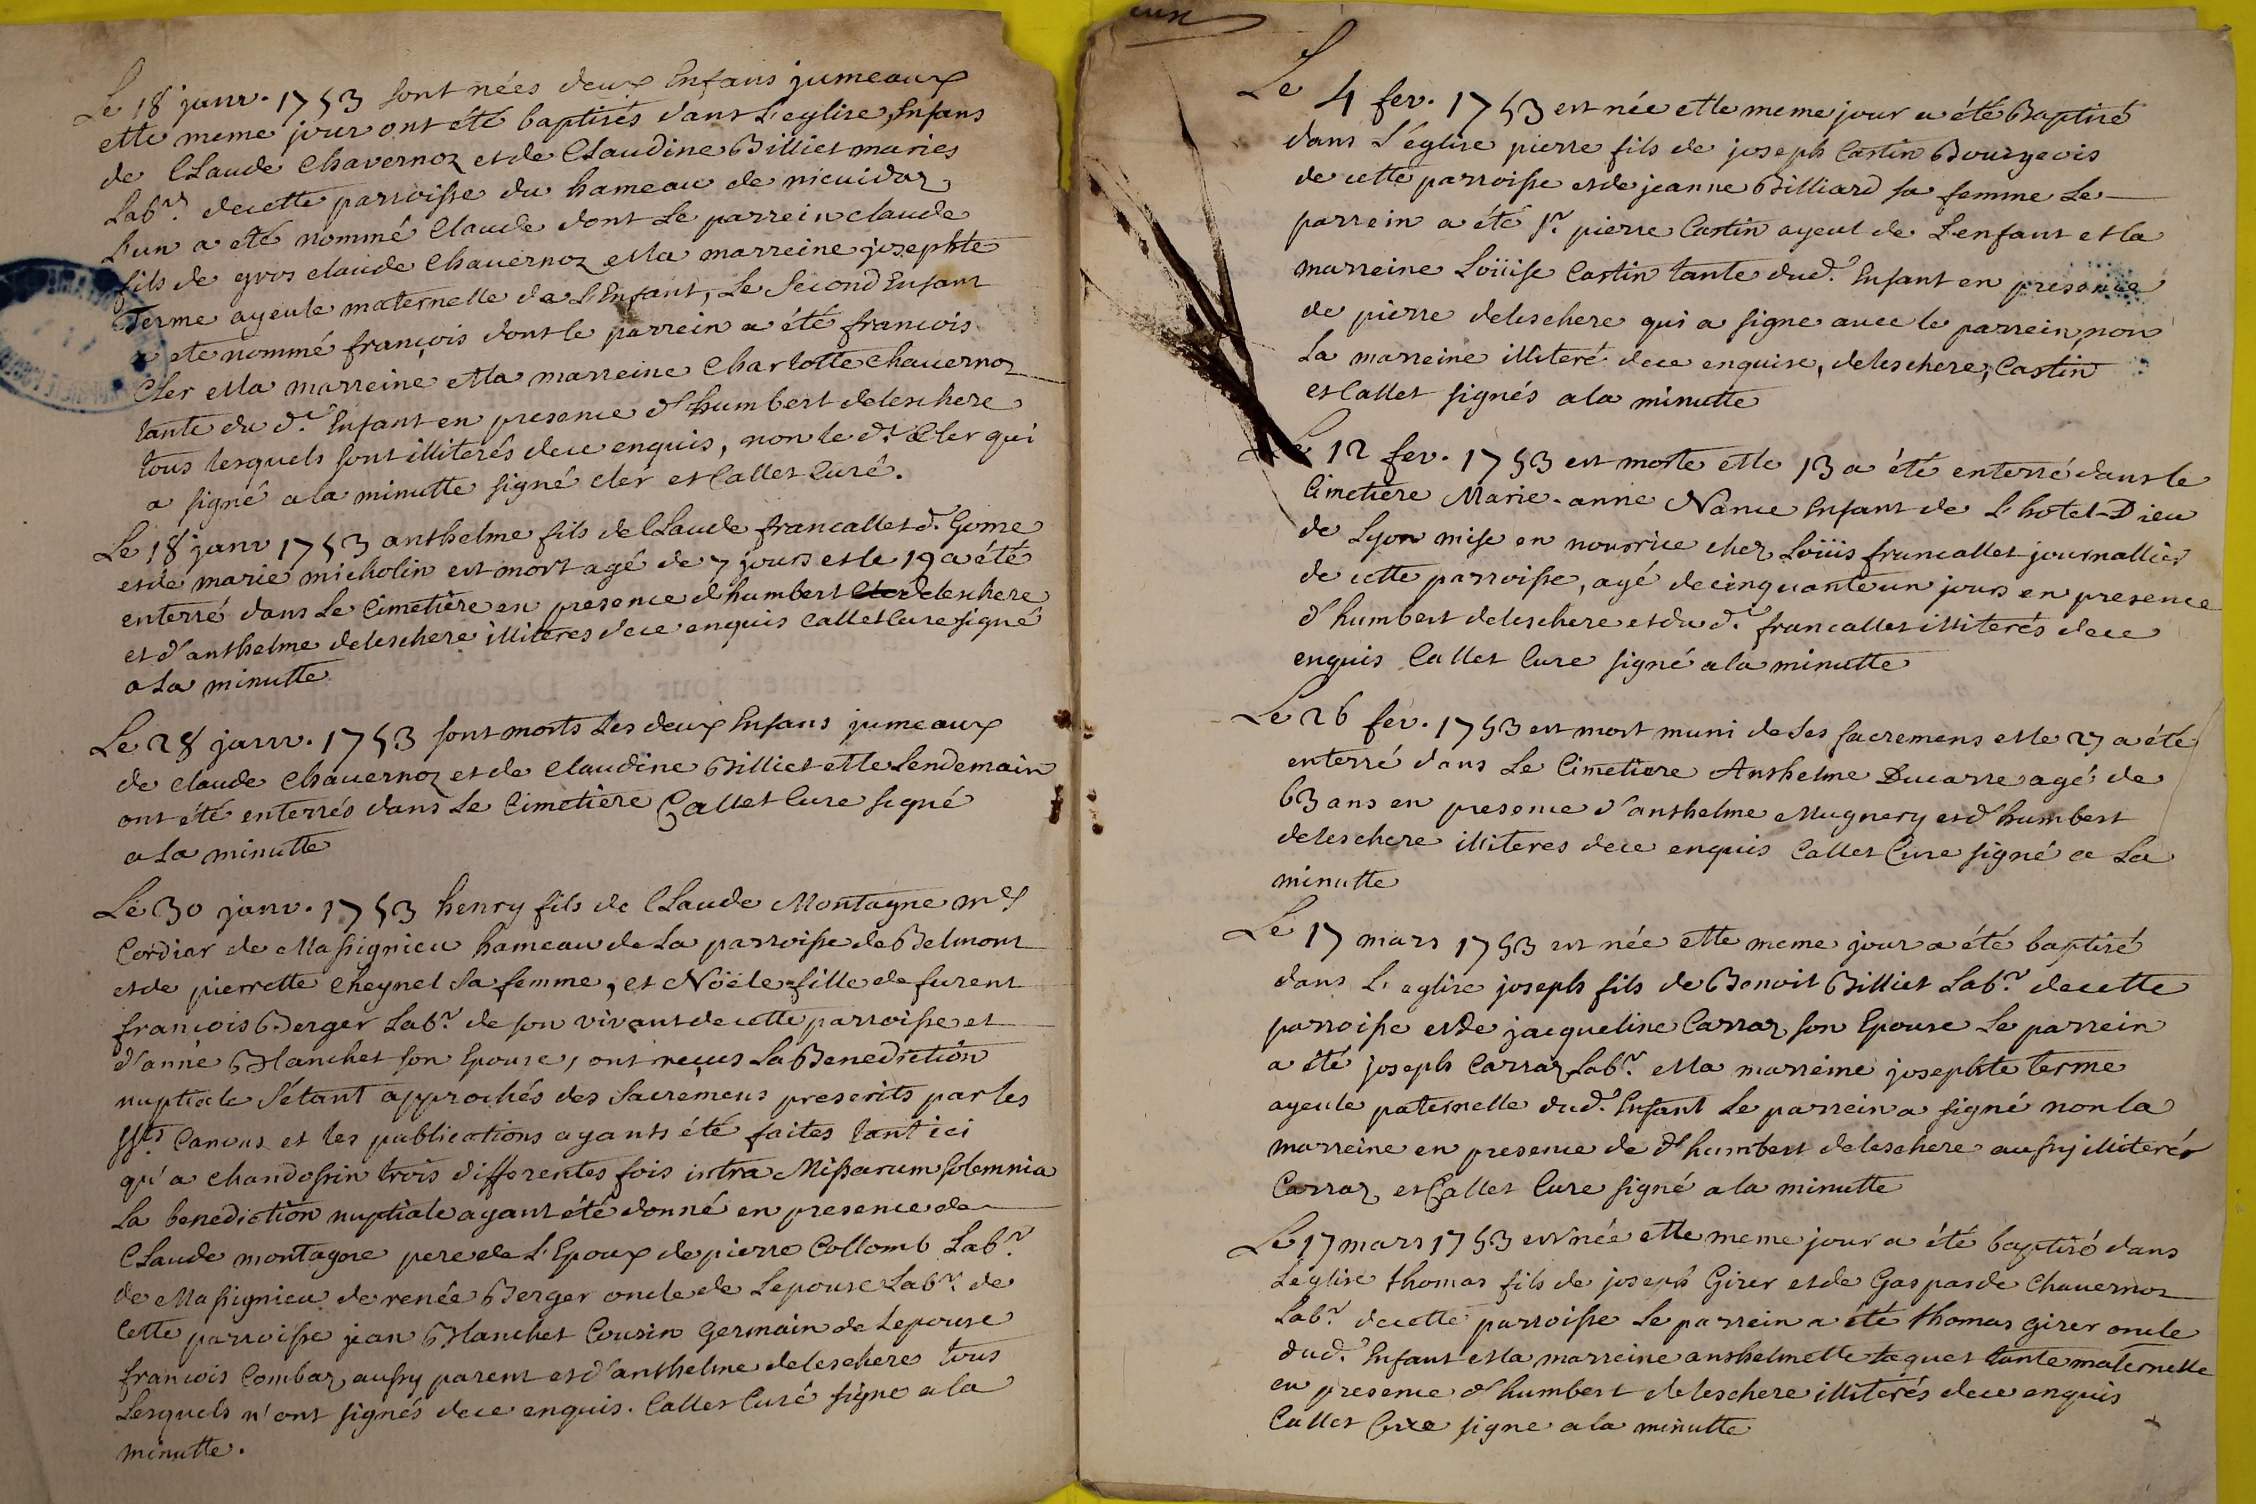 Le 18 janv. 1753 sont nées deux Enfans jumeaux
ette meme jour ont été baptisés dans L'eglise, Enfans
de Claude Chavernoz et de Claudine Billiet maries
Labr. decette parroisse du hameau de
L'un a eté nommé Claude dont Le parrein claude
fils de gros claude Chavernoz et la marreine josephte
Terme ayeule maternelle de L'Enfant, Le Second Enfant
a eté nommé françois dont le parrein a été francois
Cler et la marreine et la marreine Charlotte Chavernoz
tante du d. Enfant en presence d'humbert deleschere
tous lesquels sont illiterés dece enquis, non le d. Cler qui
a signé a la minutte signé cler et Callet Curé.
Le 18 janv 1753 anthelme fils de Claude francallet d. Gome
et de marie micholin est mort agé de 7 jours et le 19 a été
enterré dans Le Cimetière en presence d'humbert Cler deleschere
et d'anthelme deleschere illiteres dece enquis Callet Cure signé
a La minutte
Le 28 janv. 1753 sont morts Les deux Enfans jumeaux
de claude Chavernoz et de claudine Billiet et le Lendemain
ont été enterrés dans Le Cimetière Callet Cure signé
a La minutte
Le 30 janv. 1753 henry fils de Claude Montagne md
Cordier de Massignieu hameau de La parroisse de Belmont
et de pierrette Cheynel sa femme, et Noële fille de furent
francois Berger Labr. de son vivant de cette parroisse et
d'anne Blanchet son Epouse, ont reçus La Benediction
nuptiale s'étant approchés des Sacremens prescrits par les
Sts Canons et les publications ayants été faites tant ici
qu'a Chandossin trois differentes fois intra Missarum solemnia
La benediction nuptiale ayant été donné en presence de
Claude montagne pere de L'Epoux de pierre Collomb Labr.
de Massignieu de renée Berger oncle de Lepouse Labr. de
Cette parroisse jean Blanchet Cousin Germain de Lepouse
francois Combaz aussy parent et d'anthelme deleschere tous
Lesquels n'ont signés dece enquis. Callet Curé signe a la
minutte.
Le 4 fev. 1753 est née ette meme jour a été Baptisé
dans L'église pierre fils de joseph Castin Bourgeois
de cette parroisse et de jeanne Billiard sa femme Le
parrein a été Sr. pierre Castin ayeul de L'enfant et la
marreine Loüise Castin tante dud. Enfant en presence
de pierre deleschere qui a signe avec le parrein, non
La marreine illiteré dece enquise, deleschere, Castin
et Callet signés a la minutte
Le 12 fev. 1753 est morte ette 13 a été enterré dans le
Cimetière Marie-anne Nance Enfant de L'hotel-Dieu
de Lyon mise en nourrice chez Loüis francallet journallier
de cette parroisse, agé decinquante un jours en presence
d'humbert deleschere et du d. francallet illiterés dece
enquis Callet Cure signé a la minutte
Le 26 fev. 1753 est mort muni de Ses Sacremens et le 27 a été
enterré dans Le Cimetiere Anthelme Ducarre agé de
63 ans en presence d'anthelme Mugnery et d'humbert
deleschere illiteres dece enquis Callet Cure signé a La
minutte
Le 17 mars 1753 est née ette meme jour a été baptisé
dans L'eglise joseph fils de Benoit Billiet Labr. decette
parroisse et de jacqueline Carraz son Epouse Le parrein
a été joseph Carraz Labr. et la marreine josephte terme
ayeule paternelle dud. Enfant Le parrein a signé non la
marreine en presence de d'humbert deleschere aussy illiterés
Carraz et Callet Cure signé a la minutte
Le 17 mars 1753 est née ette meme jour a été baptisé dans
Leglise thomas fils de joseph Girer et de Gasparde Chavernoz
Labr. decette parroisse Le parrein a été thomas girer oncle
dud. Enfant et la marreine anthelmette taquet tante maternelle
en presence d'humbert deleschere illiterés dece enquis
Callet Cure signe a la minutte